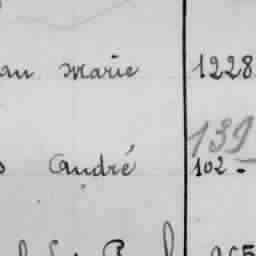 an Marie 1228
139
s André 102 -